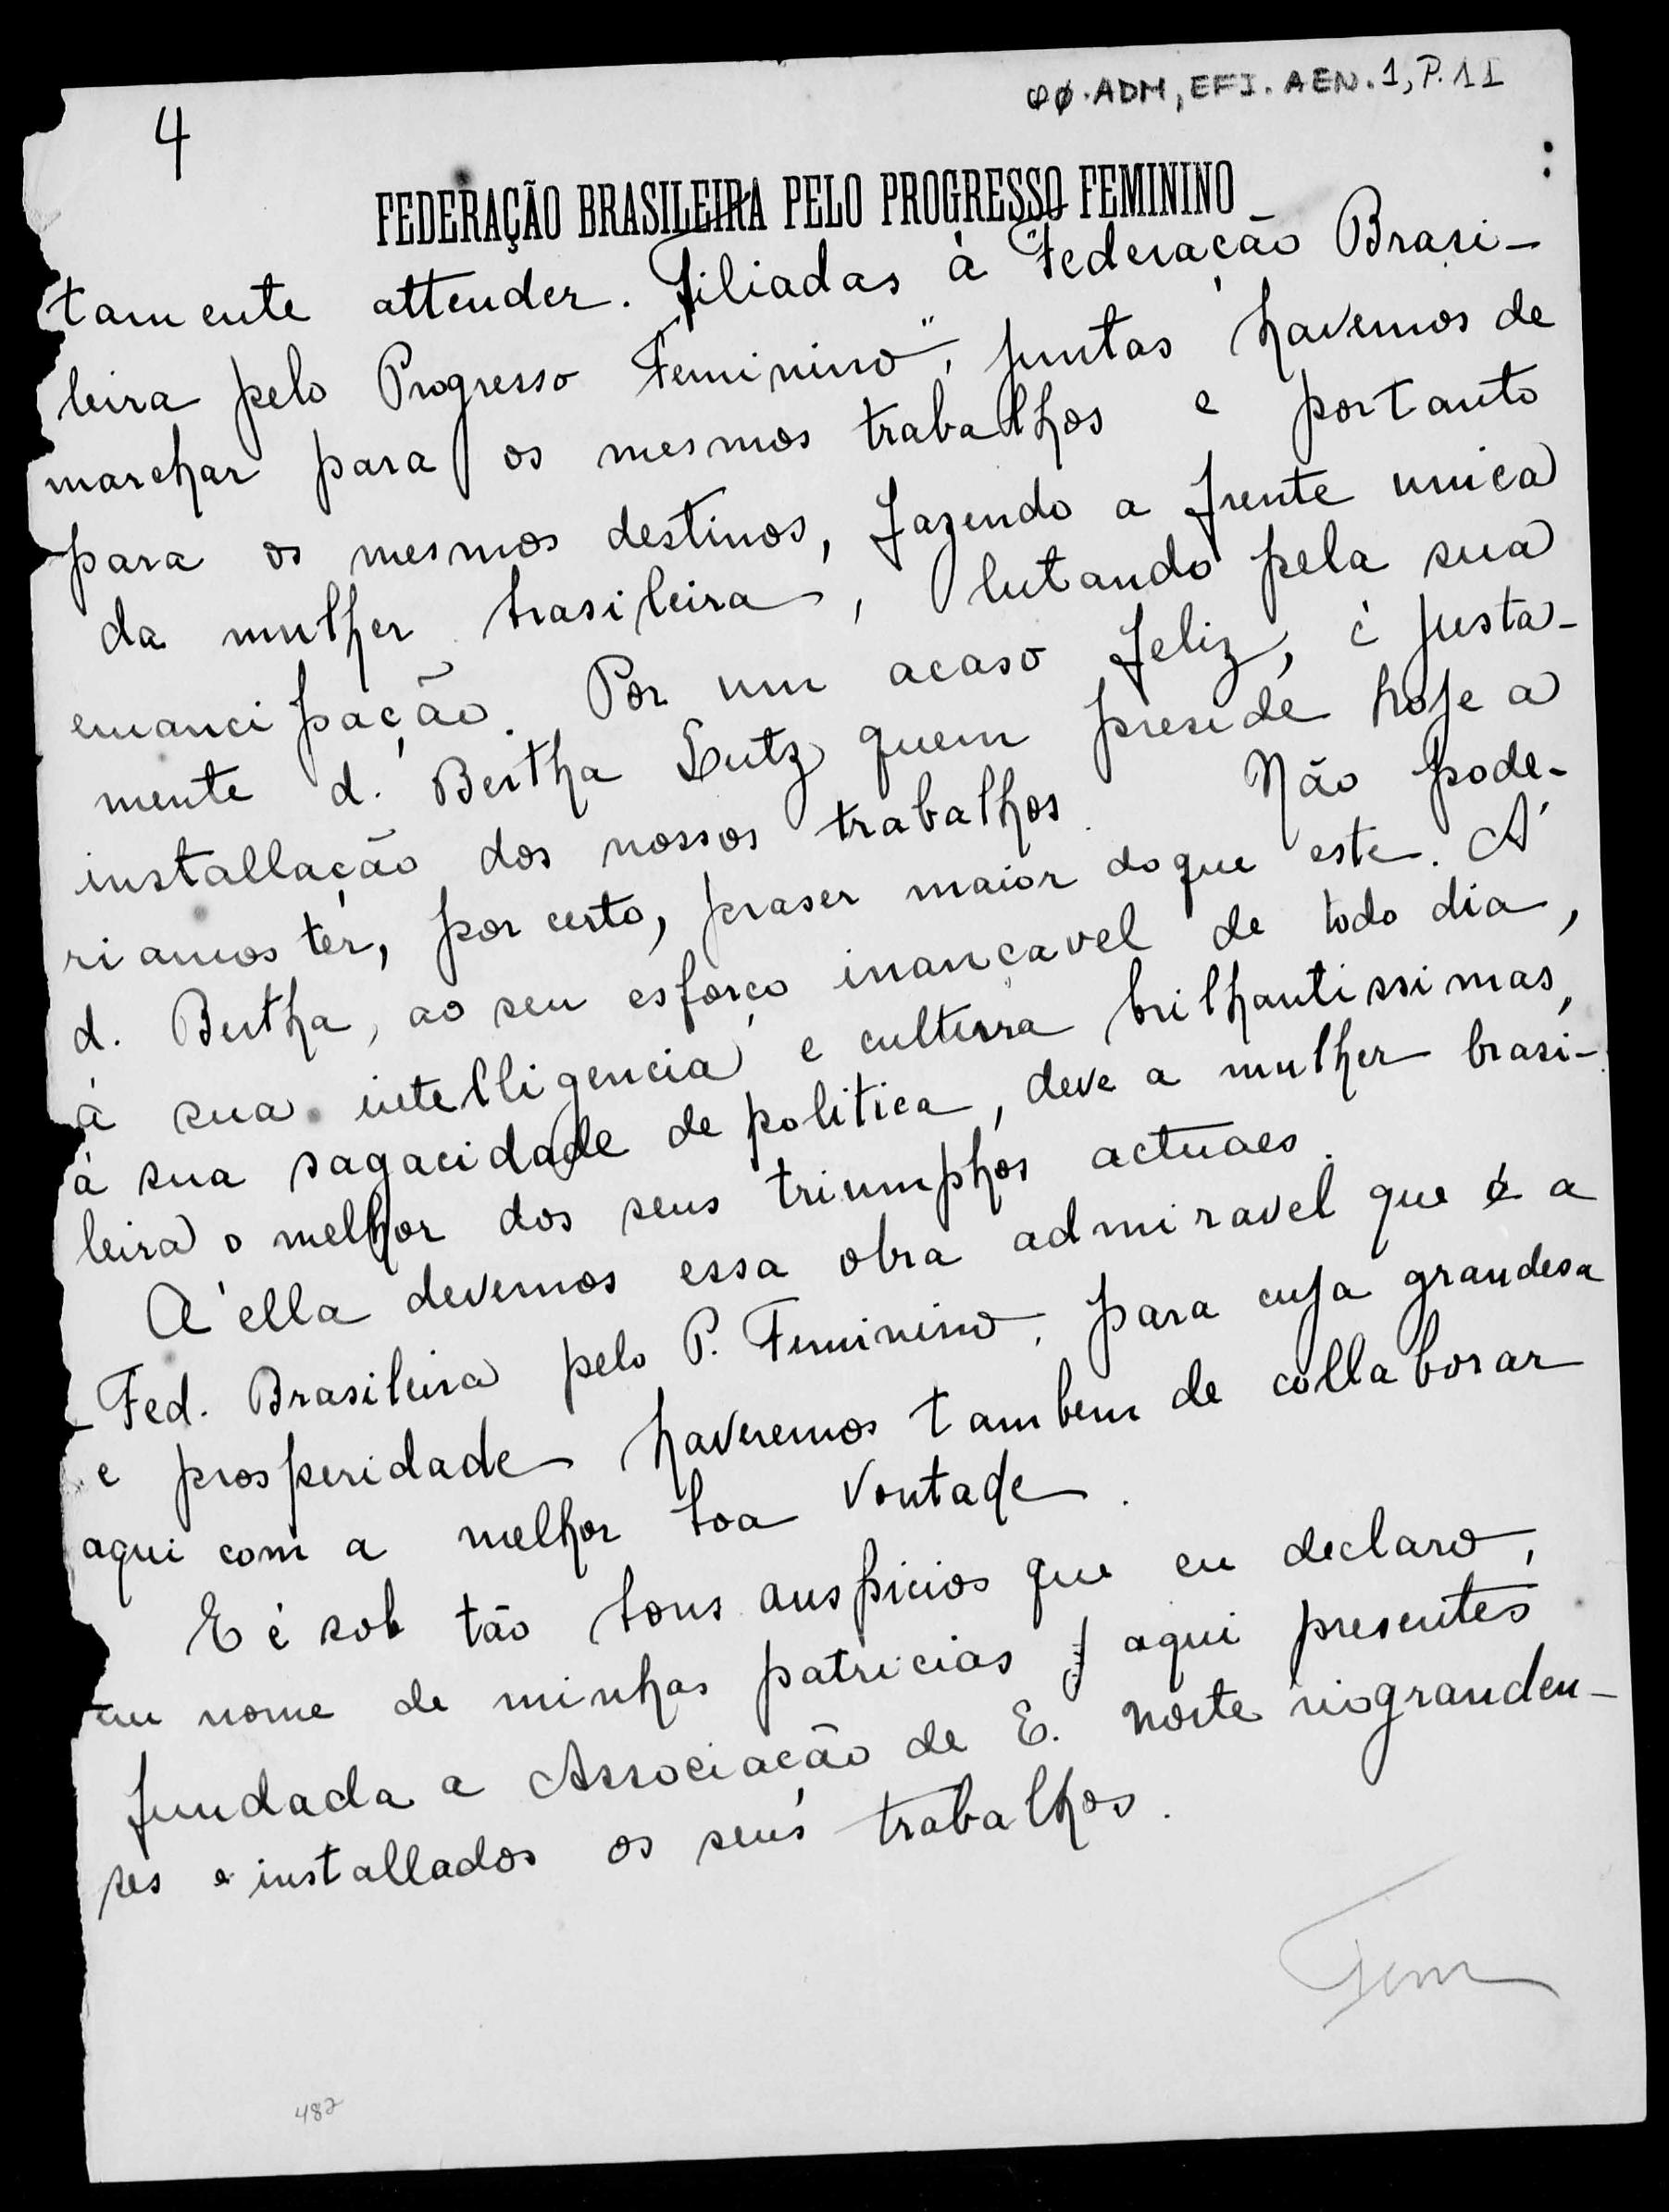 QØ.ADM, EFI. AEN. 1, P. 11
4
FEDERAÇÃO BRASILEIRA PELO PROGRESSO FEMININO
tamente attender. Filiadas à "Federação Brasi-
leira pelo Progresso Feminino", juntas havemos de
marchar para os mesmos trabalhos e portanto
para os mesmos destinos, fazendo a frente unica
da mulher brasileira, lutando pela sua
emancipação. Por um acaso feliz, é justa-
mente d. Bertha Lutz quem preside hoje a
installação dos nossos trabalhos. Não pode-
riamos ter, por certo, praser maior do que este. A'
d. Bertha, ao seu esforço inançavel de todo dia,
á sua intelligencia e cultura brilhantissimas,
á sua sagacidade de politica, deve a mulher brasi-
leira o melhor dos seus triumphos actuaes.
A' ella devemos essa obra admiravel que é a
Fed. Brasileira pelo P. Feminino, para cuja grandesa
e prosperidade haveremos tambem de collaborar
aqui com a melhor boa vontade.
E é sob tão bons auspicios que eu declaro,
em nome de minhas patricias aqui presentes
fundada a Associação de E. norte riogranden-
ses e installados os seus trabalhos.
482